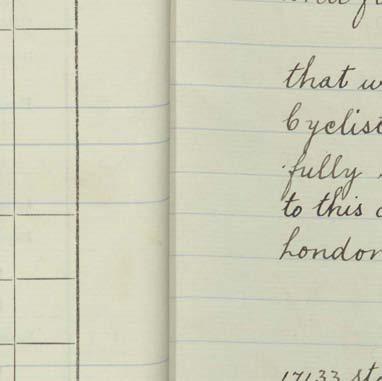 that w
Cyclist
fully
to this
London
17133 st